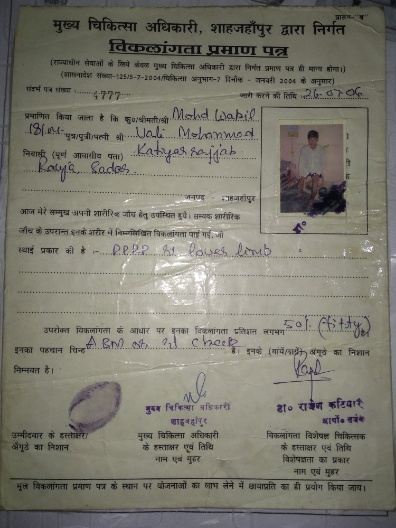 प्रारूप "ब"
मुख्य चिकित्सा अधिकारी, शाहजहाँपुर द्वारा निर्गत
विकलांगता प्रमाण पत्र
(राज्याधीन सेवाओं के लिये केवल मुख्य चिकित्सा अधिकारी द्वारा निर्गत प्रमाण पत्र ही मान्य होगा।)
(शासनादेश संख्या-125/5-7-2004/चिकित्सा अनुभाग-7 दिनांक - जनवरी 2004 के अनुसार)
संदर्भ पत्र संख्या : 4777 जारी करने की तिथि 26-07-06
प्रमाणित किया जाता है कि कु0/श्रीमती/श्री Mohd Wakil
पुत्र/पुत्री/पत्नी श्री Vali Mohammad
निवासी (पूर्ण आवासीय पता)
Sadar
जनपद - शाहजहाँपुर
आज मेरे सम्मुख अपनी शारीरिक जाँच हेतु उपस्थित हुये। सम्यक शारीरिक
जाँच के उपरान्त इनके शरीर में निम्नलिखित विकलांगता पाई गई, जो
स्थाई प्रकार की है :- PPRP Rt lower limb
उपरोक्त विकलांगता के आधार पर इनका विकलांगता प्रतिशत लगभग 50% (fifty) है
इनका पहचान चिन्ह A BM on Rt cheek है। इनके (बायें/दायें) अँगूठे का निशान
निम्नवत है।
मुख्य चिकित्सा अधिकारी
शाहजहाँपुर
डा० राजेश कटियार
उम्मीदवार के हस्ताक्षर/
अँगूठे का निशान
मुख्य चिकित्सा अधिकारी
के हस्ताक्षर एवं तिथि
नाम एवं मुहर
विकलांगता विशेषज्ञ चिकित्सक
के हस्ताक्षर एवं तिथि
विशेषज्ञता का प्रकार
नाम एवं मुहर
मूल विकलांगता प्रमाण पत्र के स्थान पर योजनाओं का लाभ लेने में छायाप्रति का ही प्रयोग किया जाय।